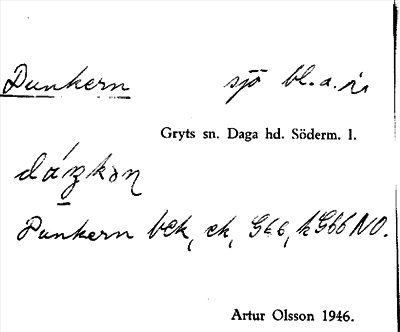 Dunkern sjö bl.a. i
Gryts sn. Daga hd. Söderm. l.
Dunkern bek, ek, G66, h G66 NO.
Artur Olsson 1946.